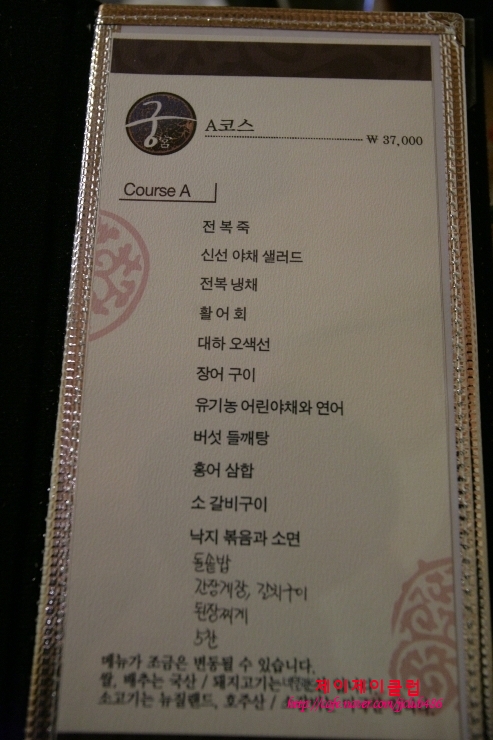 궁
A코스
₩ 37,000
Course A
전 복 죽
신선 야채 샐러드
전복 냉채
활 어 회
대하 오색선
장어 구이
유기농 어린야채와 연어
버섯 들깨탕
홍어 삼합
소 갈비구이
낙지 볶음과 소면
돌솥밥
간장게장, 갈치구이
된장찌게
5찬
메뉴가 조금은 변동될 수 있습니다.
쌀, 배추는 국산 / 돼지고기는
소고기는 뉴질랜드, 호주산 /